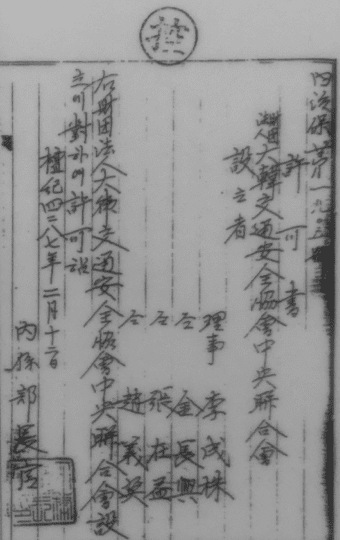 內治保第一九〇五號
許可書
社團大韓交通安全協會中央聯合會
設立者
理事 李成珠
仝 金長興
仝 張在益
仝 趙義英
右社團法人大韓交通安全協會中央聯合會設
立에對하여許可함
檀紀四二八七年 二月十二日
內務部長官